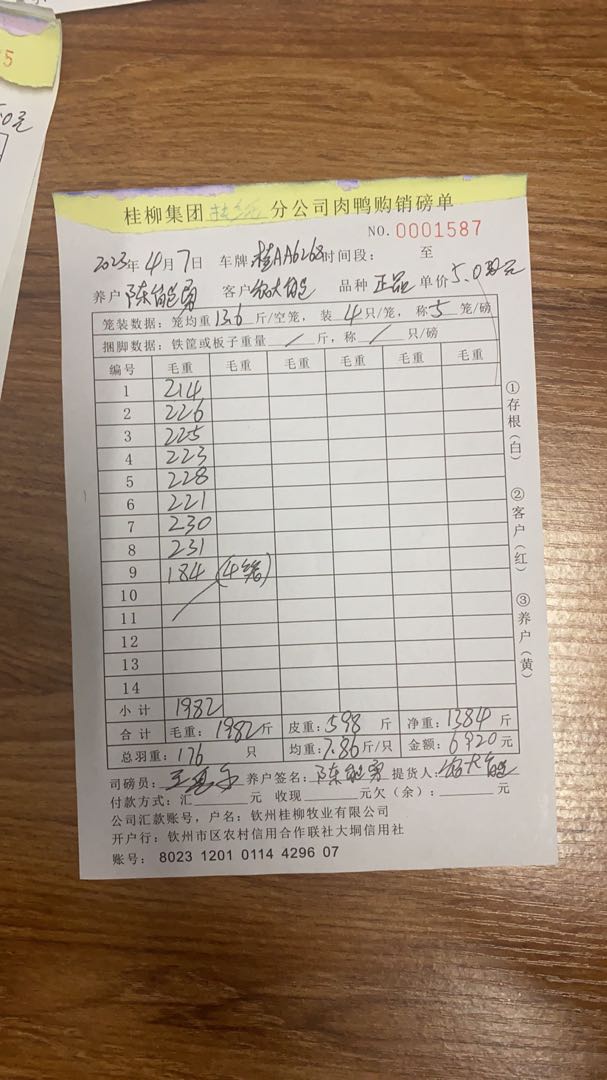 5
.0元
桂柳集团 分公司肉鸭购销磅单
NO. 0001587
2023年4月7日 车牌:桂AA6268 时间段: 至
养户 陈能勇 客户 大 品种 正品 单价 5.0 元
笼装数据:笼均重 13.6 斤/空笼,装 4 只/笼,称 5 笼/磅
捆脚数据:铁筐或板子重量 / 斤,称 / 只/磅
编号 毛重 毛重 毛重 毛重 毛重 毛重
1 214
2 226
3 225
4 223
5 228
6 221
7 230
8 231
9 184 (4笼)
10
11
12
13
14
小计 1982
合计 毛重:1982斤 皮重:598 斤 净重:1384 斤
总羽重:176 只 均重:7.86斤/只 金额:6920元
司磅员: 王 养户签名: 陈能勇 提货人: 大
付款方式:汇 元 收现 元欠(余): 元
公司汇款账号,户名:钦州桂柳牧业有限公司
开户行:钦州市区农村信用合作联社大垌信用社
账号: 8023 1201 0114 4296 07
①存根(白)
②客户(红)
③养户(黄)